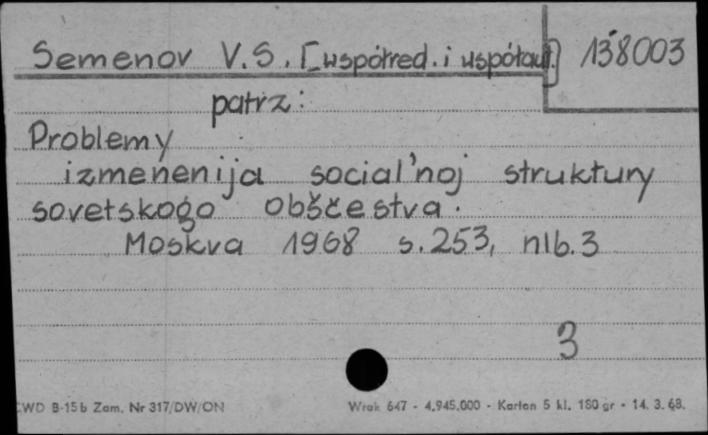 Semenov V.S. [współred. i współaut.] 138003
patrz:
Problemy
izmenenija social'noj struktury
sovetskogo obščestva.
Moskva 1968 s. 253, nlb. 3
3
CWD B-15b Zam. Nr 317/DW/ON Wrak 647 - 4.945.000 - Karton 5 kl. 180 gr - 14. 3. 68.